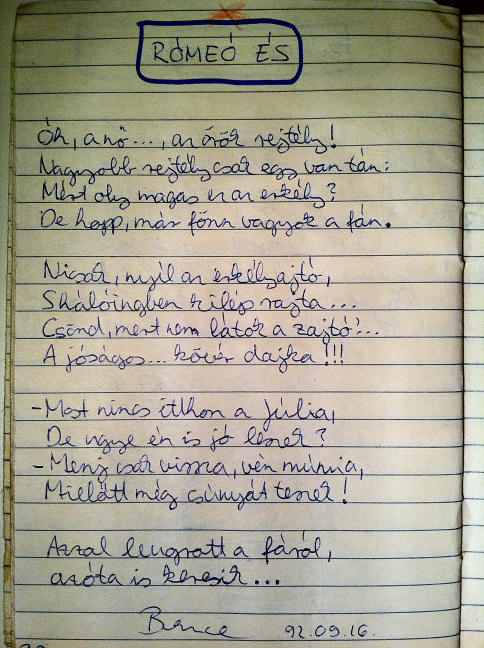 RÓMEÓ ÉS
Óh, a nő..., az örök rejtély!
Nagyobb rejtély csak egy van tán:
Mért oly magas ez az erkély?
De hopp, már fönn vagyok a fán.
Nicsak, nyíl az erkélyajtó,
S hálóingben kilép rajta...
Csönd, mert nem látok a zajtó'...
A jóságos... kövér dajka!!!
- Most nincs itthon a Júlia,
De ugye én is jó leszek?
- Menj csak vissza, vén múmia,
Mielőtt még csúnyát teszek!
Azzal leugrott a fáról,
azóta is keresik...
Bence 92.09.16.